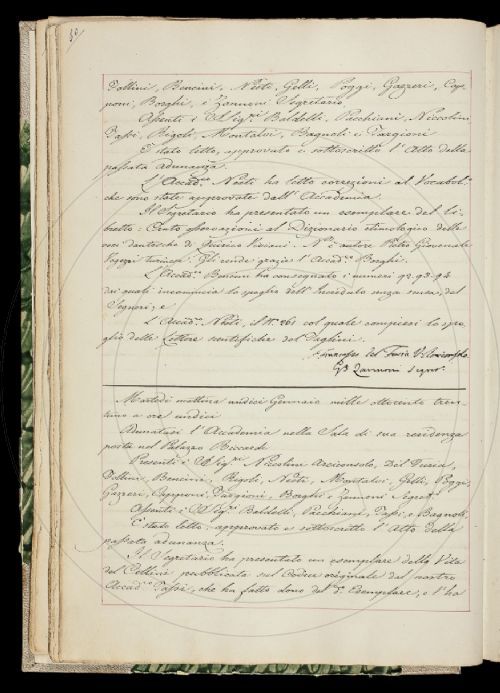 30
Follini, Bencini, Nesti, Gelli, Poggi, Gazzeri, Cap-
poni, Borghi, e Zannoni Segretario
Assenti i SSig.ri Baldelli, Pacchiani, Niccolini
Tassi, Rigoli, Montalvi, Bagnoli e Targioni
È stato letto, approvato e sottoscritto l'Atto della
passata adunanza.
L'Accad.co Nesti ha letto correzioni al Vocabol.o
che sono state approvate dall'Accademia.
Il Segretario ha presentato un esemplare del li-
bretto: Cento osservazioni al Dizionario etimologico delle
voci dantesche di Quirico Viviani. N'è autore Pietro Giovenale
Vegezzi torinese: Gli rende grazie l'Accad.co Borghi.
L'Accad.co Bencini ha consegnato i numeri 92. 93. 94
dai quali incomincia lo spoglio dell' senza senso, del
Segneri; e
L'Accad.co Nesti, il N.o 261 col quale comincia lo spo-
glio delle Lettere scientifiche del Magalini.
Francesco del Furia
GB Zannoni Segret.
Martedì mattina undici Gennaio mille ottocento tren-
tuno a ore undici
Adunatasi l'Accademia nella Sala di sua residenza
posta nel Palazzo Riccardi
Presenti i SSig.ri Niccolini Arciconsolo, Del Furia,
Follini, Bencini, Rigoli, Nesti, Montalvi, Gelli, Poggi
Gazzeri, Capponi, Targioni, Borghi e Zannoni Segret.
Assenti i SSig.ri Baldelli, Pacchiani, Tassi, e Bagnoli.
È stato letto, approvato e sottoscritto l'Atto della
passata adunanza.
Il Segretario ha presentato un esemplare della Vita
del Cellini, pubblicata sul Codice originale dal nostro
Accad.co Tassi, che ha fatto dono del d.o Esemplare, e l'ha